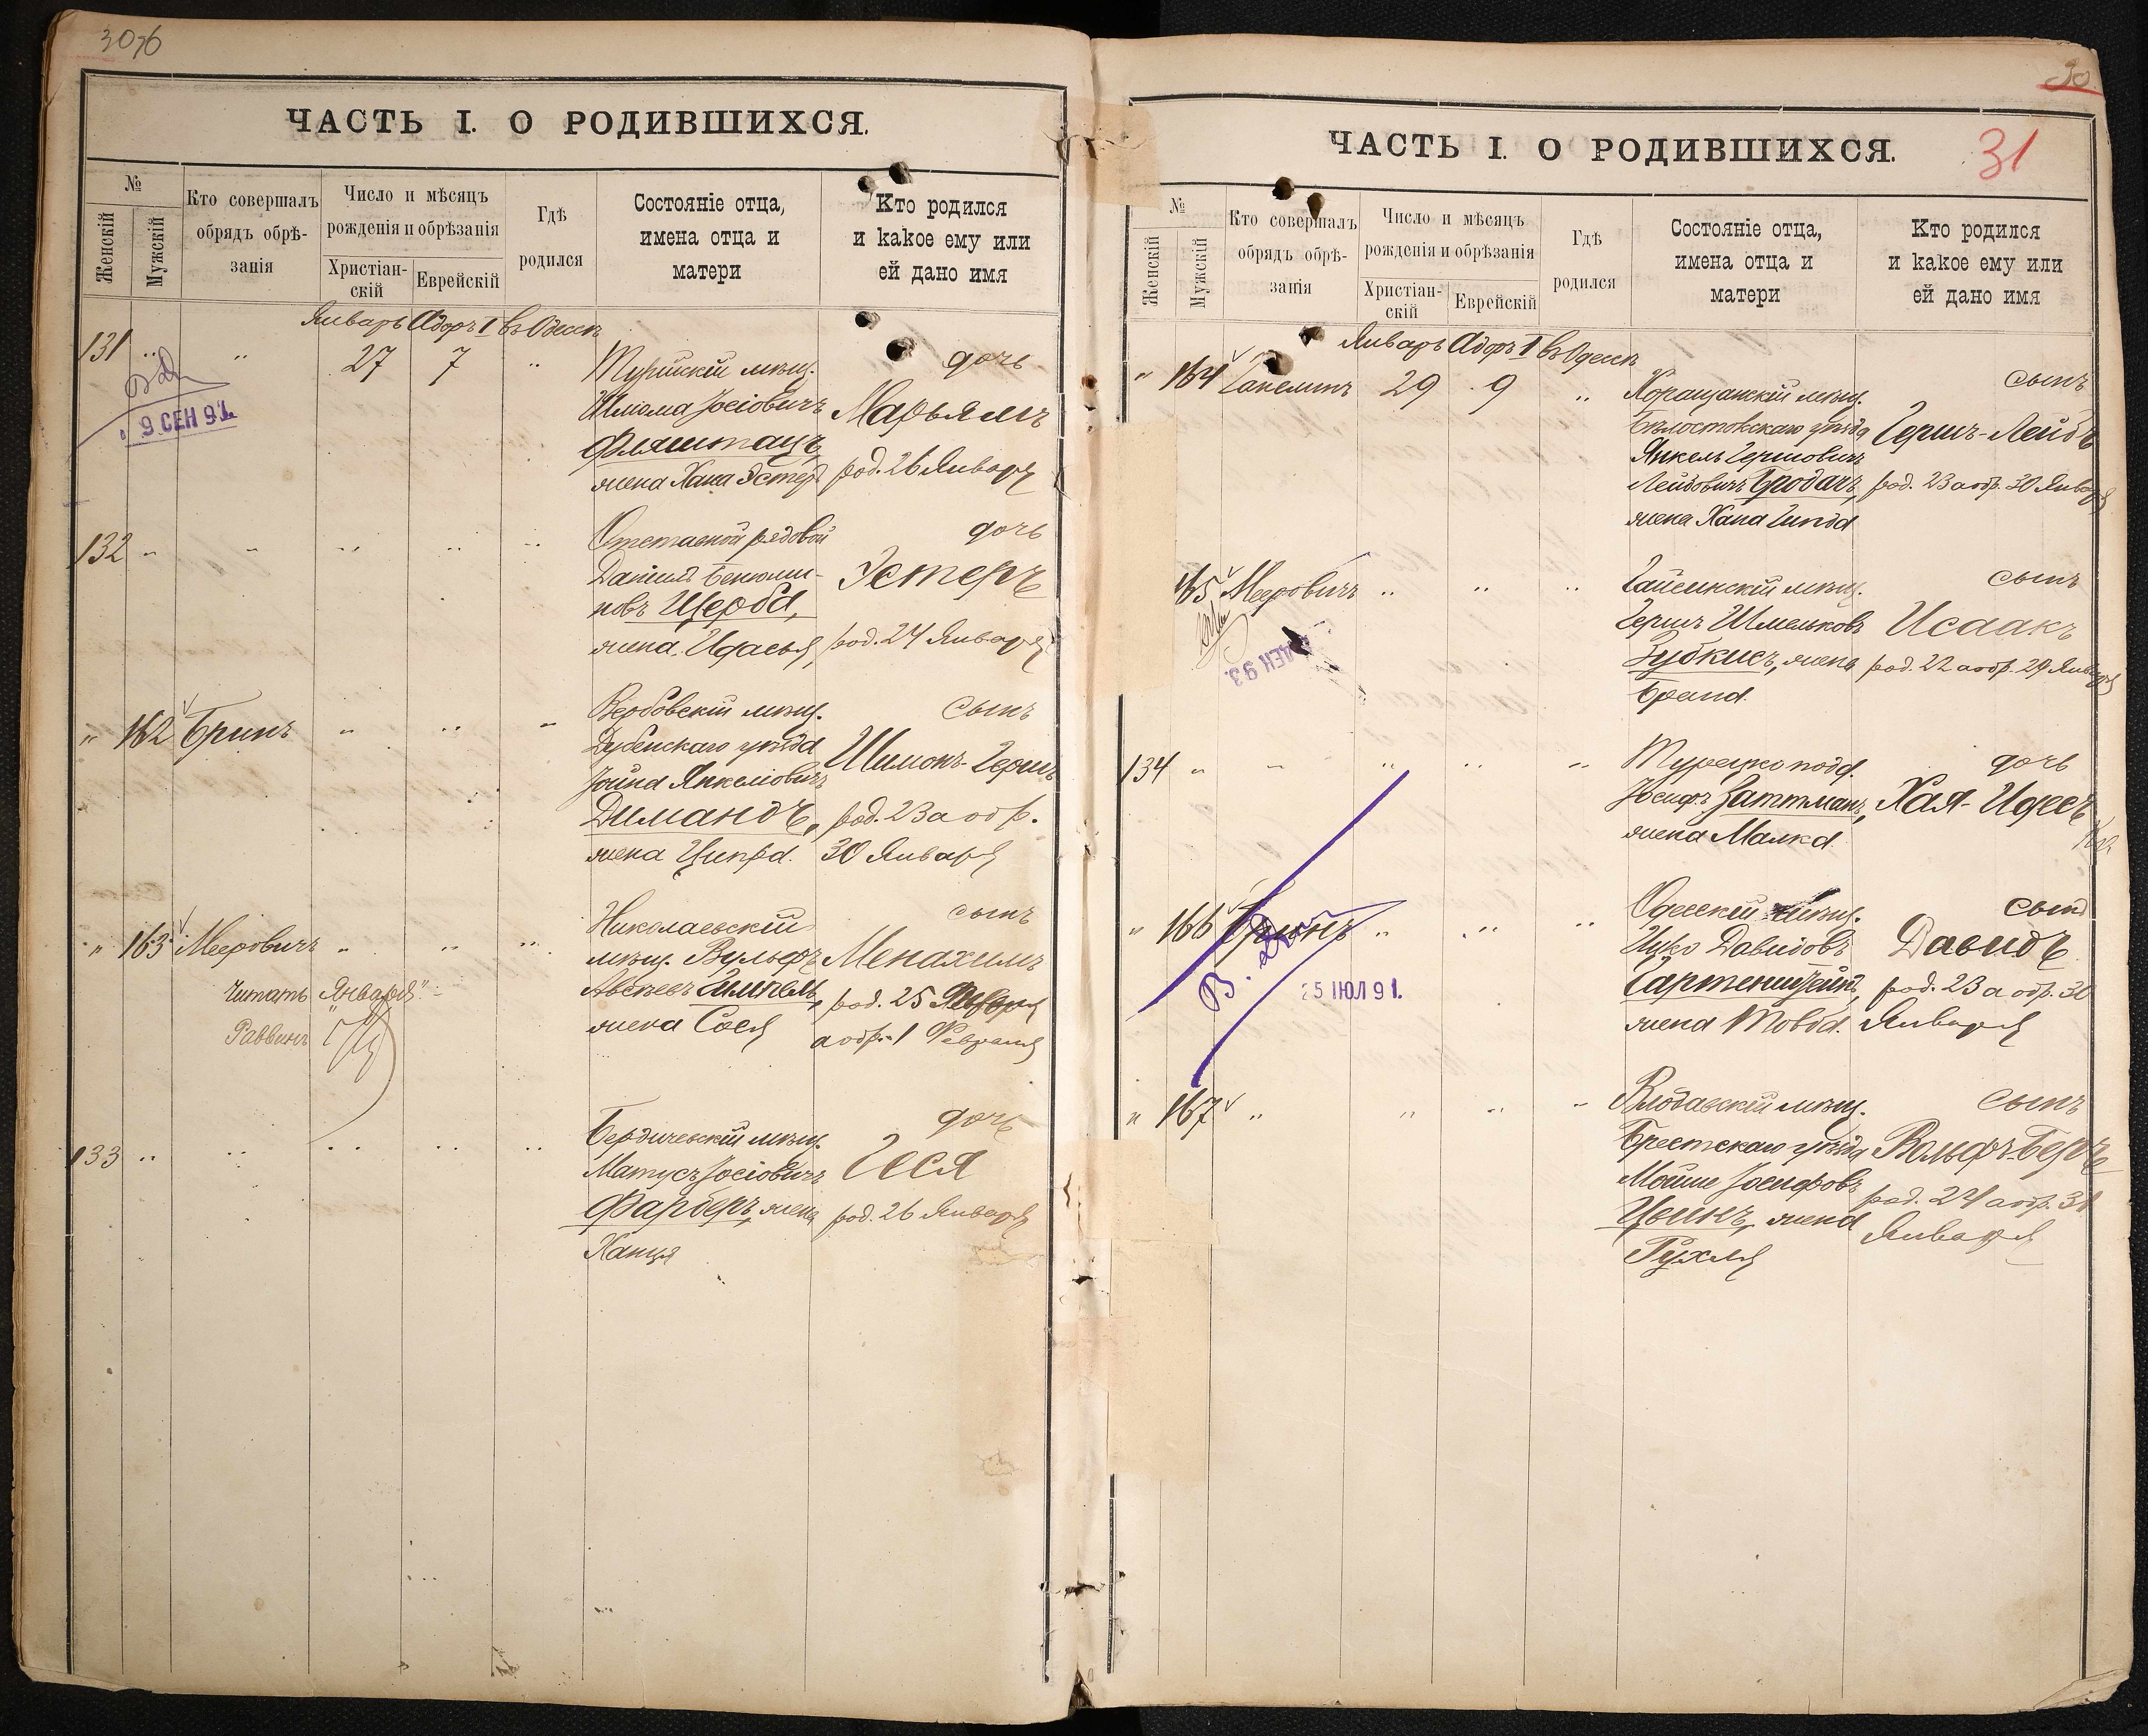 3076
ЧАСТЬ I. О РОДИВШИХСЯ.
№
Женскій
Мужскій
Кто совершалъ
обрядъ обрѣ-
занія
Число и мѣсяцъ
рожденія и обрѣзанія
Христіан-
скій
Еврейскій
Гдѣ
родился
Состояніе отца,
имена отца и
матери
Кто родился
и какое ему или
ей дано имя
Январь Адоръ I въ Одессѣ
131 " " 27 7 " Турійскій мѣщ. дочь
Шлома Іосіовичъ Марьямъ
Фляштацъ,
жена Хана Эстер род. 26 Января
9 СЕН 91.
132 " " " " " Отставной рядовой дочь
Даніилъ Бенюми- Эстеръ
новъ Щерба,
жена Идасья, род. 24 Января
" 162 Бринъ " " " Вербовскій мѣщ. сынъ
Дубенскаго уѣзда Шимонъ-Гершъ
Іойна Янкеліовичъ
Димандъ, род. 23 а обр.
жена Ципра. 30 Января
" 163 Мееровичъ " " " Николаевскій сынъ
мѣщ. Вульфъ Менахимъ
Авсѣевъ Гимпель, род. 25
жена Сося а обр. 1 Февраля
Читать "Января"
Раввинъ
133 " " " " " Бердичевскій мѣщ. дочь
Матусъ Іосіовичъ Гися
Фарберъ, жена род. 26 Января
Ханця
30
31
ЧАСТЬ I. О РОДИВШИХСЯ.
№
Женскій
Мужскій
Кто совершалъ
обрядъ обрѣ-
занія
Число и мѣсяцъ
рожденія и обрѣзанія
Христіан-
скій
Еврейскій
Гдѣ
родился
Состояніе отца,
имена отца и
матери
Кто родился
и какое ему или
ей дано имя
Январь Адоръ I въ Одессѣ
" 164 Гапелинъ 29 9 " Хорощанскій мѣщ. сынъ
Бѣлостокскаго уѣзда Гершъ-Лейбъ
Янкель Гершовичъ
Лейбовичъ Бродачъ, род. 23 а обр. 30 Января
жена Хана Гинда
165 Мееровичъ " " " Гайсинскій мѣщ. сынъ
Гершъ Шмельковъ Исаакъ
Губкисъ, жена род. 22 а обр. 29 Января
Бранд.
ДЕК 93.
134 " " " " " Турецко подд. дочь
Іосифъ Гаттманъ, Хая-Идесъ
жена Малка
" 166 Бринъ " " " Одесскій мѣщ. сынъ
Ицко Давидовъ Давидъ
Гартенштейнъ, род. 23 а обр. 30
жена Товба. Января
25 ІЮЛ 91.
" 167 " " " " Влодавскій мѣщ. сынъ
Брестскаго уѣзда Вольфъ-Беръ
Мойше Іосифовъ род. 24 а обр. 31
Цвинъ, жена Января
Рухля